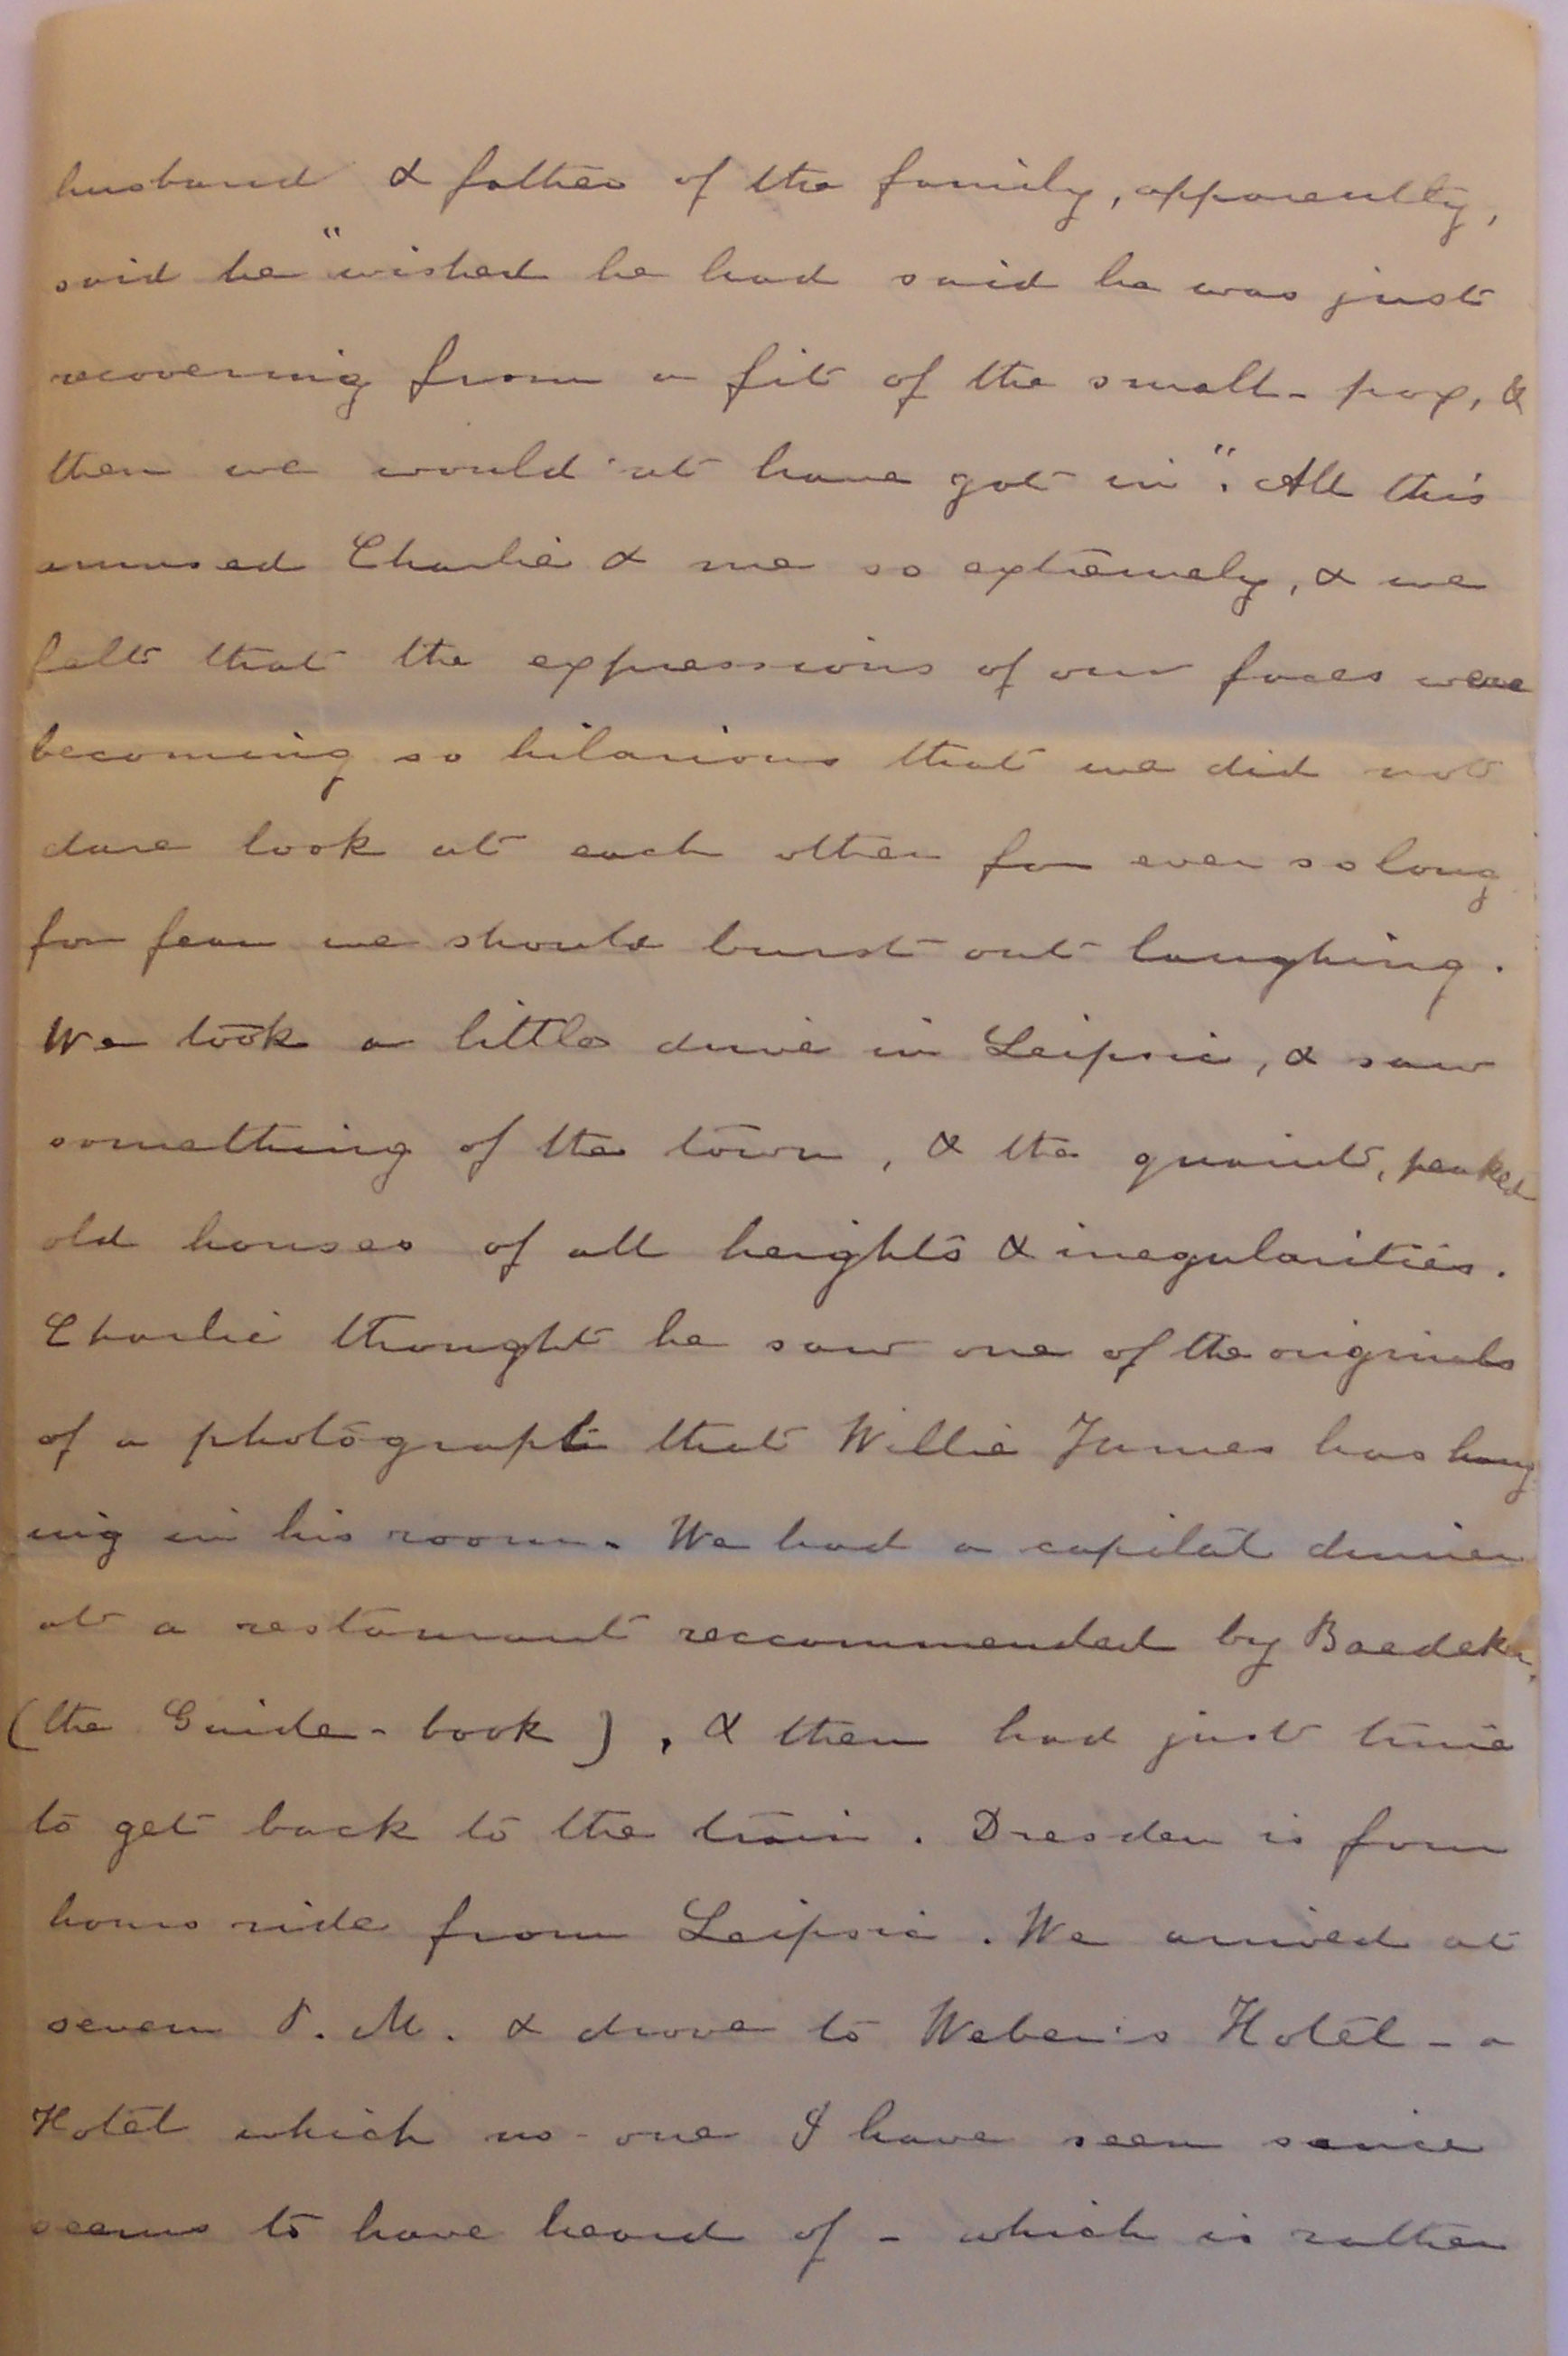 husband & father of the family, apparently,
said he "wished he had said he was just
recovering from a fit of the small-pox, &
then we would'nt have got in". All this
amused Charlie & me so extremely, & we
felt that the expressions of our faces were
becoming so hilarious that we did not
dare look at each other for ever so long
for fear we should burst out laughing.
We took a little drive in Leipsic, & saw
something of the town, & the quaint, peaked
old houses of all heights & iregularities.
Charlie thought he saw one of the originals
of a photograph that Willie James has hang
ing in his room. We had a capital dinner
at a restaurant reccommended by Baedeker,
(the Guide-book), & then had just time
to get back to the train. Dresden is four
hours ride from Leipsic. We arrived at
seven P.M. & drove to Weber's Hotel - a
Hotel which no-one I have seen since
seems to have heard of - which is rather